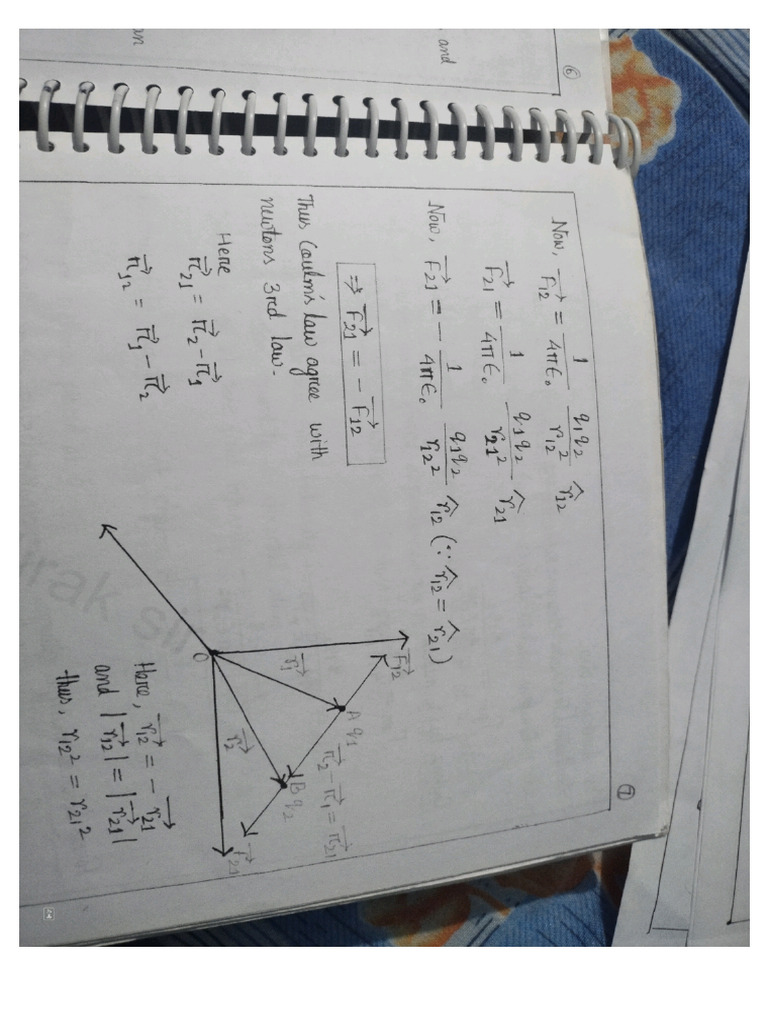 ⑥
and
an
⑦
Now, F₁₂⃗ = 1/4πϵ₀ q₁q₂/r₁₂² r̂₁₂
F₂₁⃗ = 1/4πϵ₀ q₁q₂/r₂₁² r̂₂₁
Now, F₂₁⃗ = - 1/4πϵ₀ q₁q₂/r₁₂² r̂₁₂ (∵ r̂₁₂ = r̂₂₁)
⇒ F₂₁⃗ = - F₁₂⃗
Thus Coulm's law agree with
newtons 3rd law.
Here
r₂₁⃗ = r₂⃗ - r₁⃗
r₁₂⃗ = r₁⃗ - r₂⃗
F₁₂⃗
A q₁
r₂⃗ - r₁⃗ = r₂₁⃗
r₁⃗
B q₂
r₂⃗
F₂₁⃗
O
Here, r₁₂⃗ = - r₂₁⃗
and |r₁₂⃗| = |r₂₁⃗|
thus, r₁₂² = r₂₁²